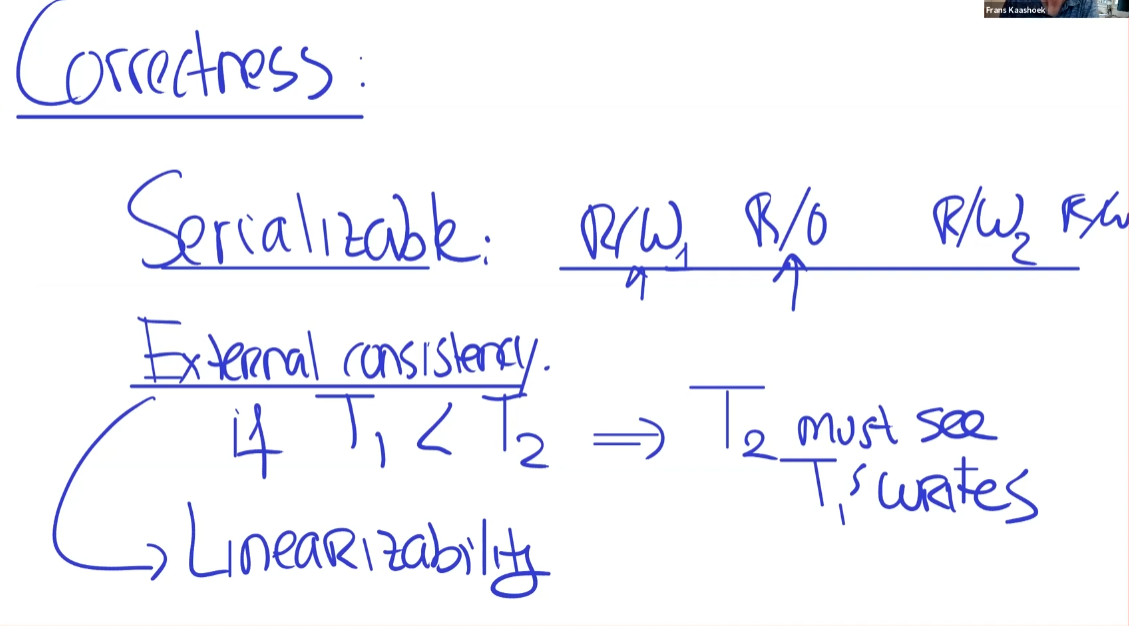 Frans Kaashoek
Correctness:
Serializable: R/W1 R/O R/W2 R/W
External consistency.
if T1 < T2 ⇒ T2 must see
T1's writes
Linearizability